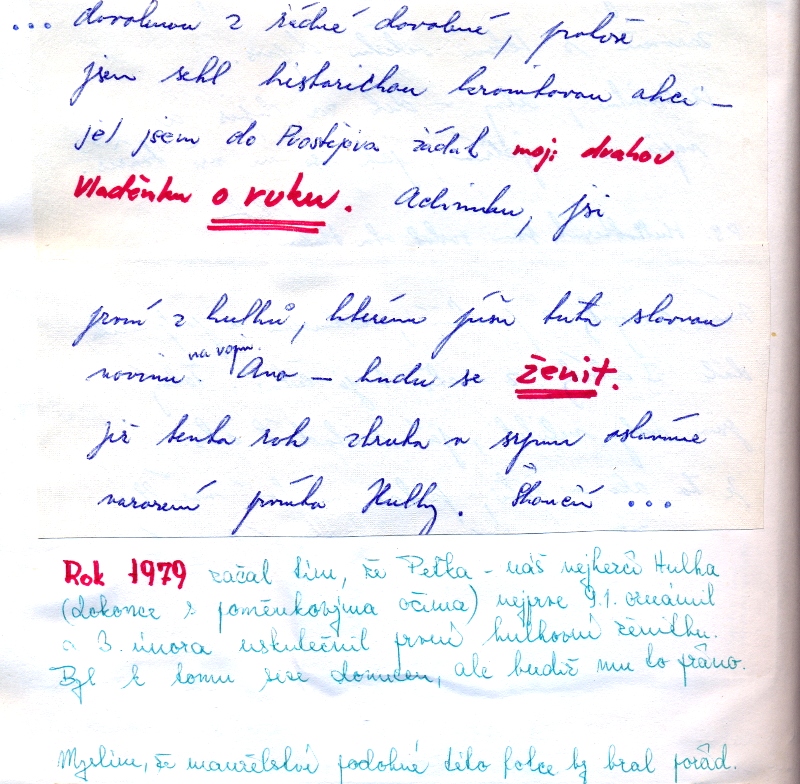 ... dovolenou z řádné dovolené, protože
jsem jel historickou kromkovou akci –
jel jsem do Prostějova žádat moji drahou
Vladěnku o ruku. Adémku, jsi
první z hulků, kterému píšu tuto slavnou
novinu na vojn. Ano – budu se ženit.
již tento rok zhruba v srpnu oslavíme
narození prvního Hulky. Skončil ...
Rok 1979 začal tím, že Peťka – náš nejhezčí Hulka
(dokonce s pomněnkovýma očima) nejprve 9.1. oznámil
a 3. února uskutečnil první hulkovní ženitbu.
Byl k tomu sice donucen, ale budiž mu to přáno.
Myslím, že manželství podobné této fotce by bral pořád.